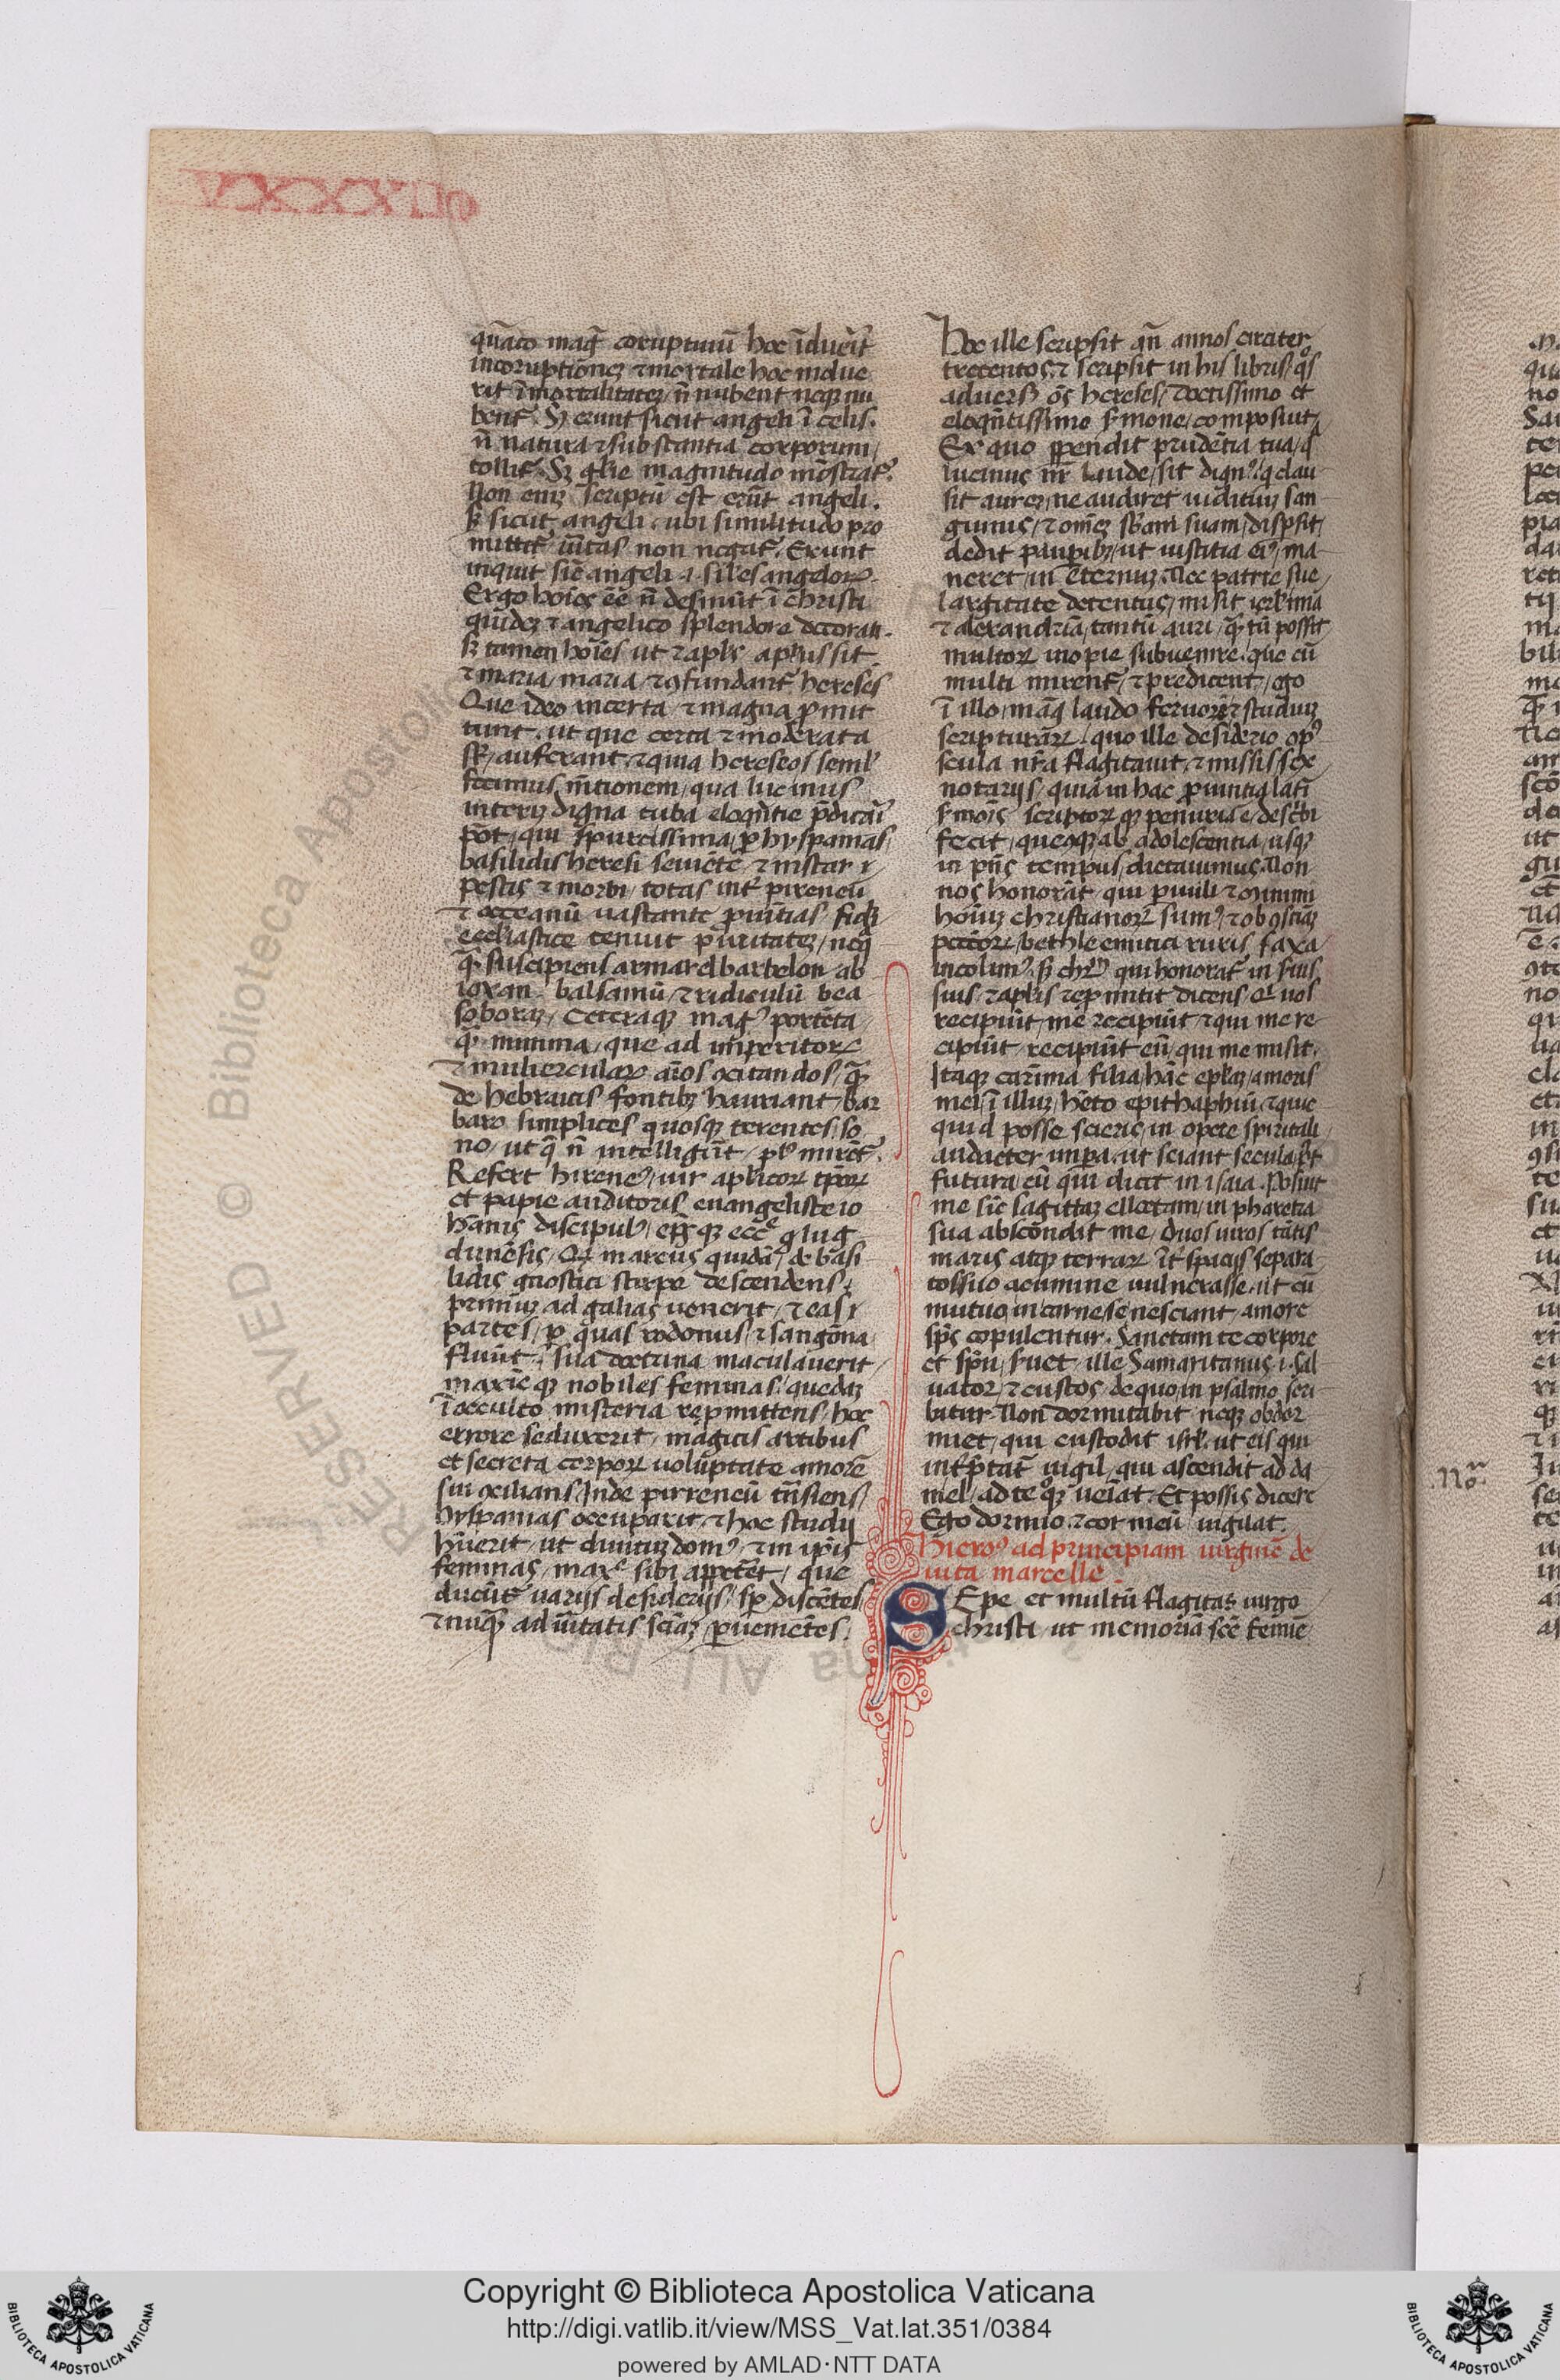 VXXXIIo
qu̅aco mag̅ corruptiuu̅ hoc i̅duerit
incoruptionez ⁊ mortale hoc indue
rit i̅mortalitatez / n̅ nubent neqz nu
bent᷑. Sz erunt sicut angeli i̅ celis.
n̅ natura ⁊ substantia corporum /
tollit᷑. Sz gl̅ie magnitudo mo̅strat᷑.
Non eniz scriptu̅ est eru̅t angeli.
sz sicut angeli. ubi similitudo pro
mittit᷑ u̅itas non negat᷑. Erunt
inquit sic̅ angeli .i. sil̅es angeloꝝ.
Ergo ho̅i̅es e̅e̅ n̅ desinu̅t i̅ christi
quidez ⁊ angelico splendore decorati.
sz tamen ho̅i̅es ut ⁊ apl̅s apl̅us sit
⁊ maria / maria / ⁊ ꝯfundant᷑ hereses
Que ideo incerta ⁊ magna ꝓmit
tunt. ut que certa ⁊ moderata
st᷑ / auferant. ⁊ quia hereseos semł
fecimus m̅tionem / qua lucinus
interiz digna tuba eloqn̅tie p̅dicari
po̅t / qui spurcissima / ꝑ hyspanias
basilidis heresi seuie̅te ⁊ instar
pestis ⁊ morbi / totas int᷑ pireneu̅
⁊ occeanu̅ uastante ꝓuin̅tias / fidei
eccl̅iastice tenuit puritatez / neq̅
q̅ꝫ suscipiens armarel barbelon ab
raxan. balsamu̅ / ⁊ ridiculu̅ leu
soboraz / Ceteraqz mag᷒ porte̅ta
q̅ꝫ numina / que ad imperitoꝝ
⁊ muliercularꝝ ai̅os ꝯcitandos / q̅ꝫ
de hebraicis fontibz hauriant / bar
baro simplices quosqz terentes so
no / ut q̅ n̅ intelligu̅t / pl᷒ mire̅t᷑.
Refert hirene᷒ / uir apl̅icoꝝ tp̅oꝝ
et papie auditoris euangeliste io
hannis discipul᷒ / ep̅s qz ecc̅e lug
dune̅sis / Qꝫ marcus quida̅ / de basi
lidis gnostici stirpe descendens /
primuz ad galias uenerit / ⁊ eas
partes / ꝑ quas rodonus / ⁊ sango̅na
fluu̅t / sua doctrina maculauerit /
maxie qz nobiles feminas / quedaz
i̅ occulto misteria repmittens / hoc
errore seduxerit / magicis artibus
et secreta corpoꝝ uoluptate amore̅
sui ꝯcilians / Inde pirreneu̅ tn̅siens /
hyspanias occuparit / ⁊ hoc studij
hu̅erit / ut diuituz domo᷒ / ⁊ in ip̅is
feminas / max̅e sibi appeteret / que
ducu̅t᷑ uarijs desiderijs / sp̅ disce̅tes
⁊ nuqꝫ ad u̅itatis scia̅z / ꝑuenie̅tes.
Hoc ille scripsit an̅ annos circiter
trecentos / ⁊ scripsit in his libris / q̊s
aduers᷒ o̅s hereses / doctissimo et
eloqn̅tissimo s᷑mone / composuit /
Ex quo ꝑpendit prude̅tia tua / q̊
lucinus nr̅ laude / sit dign᷒ / q̊ clau
sit aurez / ne audiret iudiciuz san
guinis / ⁊ om̅ez sb̅am suam / disꝑsit /
dedit pauꝑibz / ut iustitia ei᷒ / ma
neret / in eternuz. Nec patrie sue /
largitate detentus / misit ierl̅imia
⁊ alexandria̅ / tantu̅ auri / q̅tu̅ posset
multoꝝ inopie subuenire. que cu̅
multi mirent᷑ / ⁊ predicent / ego
i̅ illo / maq̅ laudo feruore̅ ⁊ studiuz
scripturaꝝ. quo ille desiderio op᷒
scula nr̅a flagitauit / ⁊ missis sex
notarijs / quia in hac ꝓuintia lati̅
s᷑mois̅ / scriptoꝝ qz penuria e̅ / describi
fecit / quecqz ab adolescentia / usqz
in pn̅s tempus / dictauimus. Non
nos honorat / qui puuili ⁊ o̅i̅minimi
ho̅i̅uz christianoꝝ sum᷒ / ⁊ ob ꝯscia̅z
pcc̅oꝝ / bethleemitici ruris saxa /
incolim᷒. sz chr̅m qui honorat᷑ in suis.
suis / ⁊ apl̅is / repmittit dicens / Qꝫ uos
recipiu̅t / me recipiu̅t / ⁊ qui me re
cipiu̅t / recipiu̅t eu̅ / qui me misit.
Itaqz cari̅ma filia / ha̅c epl̅az / amoris
mei / i̅ illuz / ha̅beto epithaphiu̅ / ⁊ quic
quid posse scieris / in opere spiritali
audacter impera. ut sciant secula p᷒t
futura / eu̅ qui dicit in isaia. Posuit
me sic̅ sagittaz ellectam / in pharetra
sua abscondit me / Duos uiros ta̅tis
maris atqz terraꝝ i̅t᷑ spacijs separa
tos / suo acumine uulnerasse / ut cu̅
mutuo / in carne / se nesciant / amore
sp̅s copulentur. Sanctam te corpore
et sp̅u / suet / ille Samaritanus .i. sal
uator / ⁊ custos / de quo in psalmo scri
bitur. Non dormitabit neqz obdor
miet / qui custodit isrl̅. ut eis qui
int᷑p̅tat᷑ uigil / qui ascendit ad da
niel / ad te qꝫ ueiat. Et possis dicere
Ego dormio ⁊ cor meu̅ uigilat.
Hiero᷒ ad principiam uirgine̅ de
uita marcelle.
SEpe et multu̅ flagitas uirgo
christi / ut memoria̅ sc̅e femie̅
No̅
Copyright © Biblioteca Apostolica Vaticana
http://digi.vatlib.it/view/MSS_Vat.lat.351/0384
powered by AMLAD·NTT DATA
BIBLIOTECA APOSTOLICA VATICANA
BIBLIOTECA APOSTOLICA VATICANA